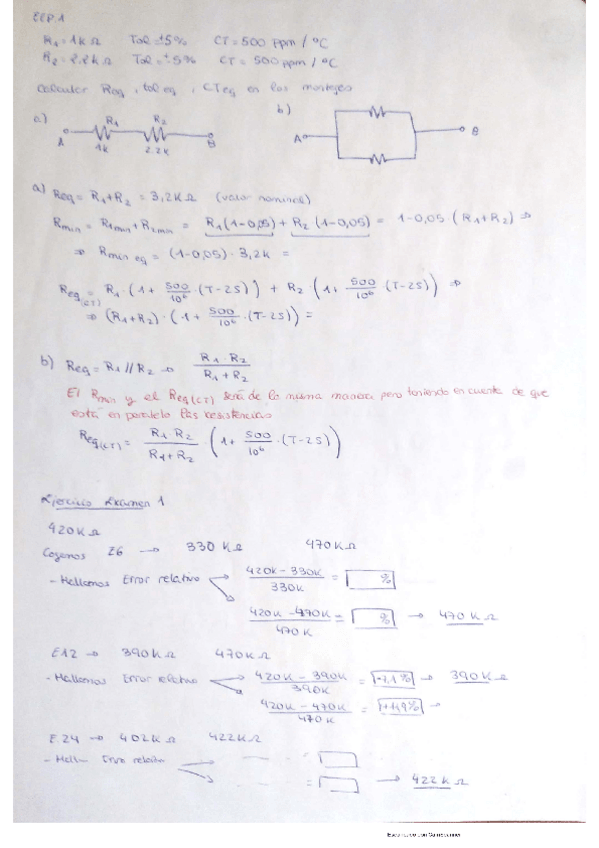 EEP.1
R1 = 1kΩ Tol ±5% CT = 500 ppm / °C
R2 = 2.2kΩ Tol = ±5% CT = 500 ppm / °C
Calcular Req, tol eq, CTeq en los montajes
a) A R1 1k R2 2.2k B
b) A B
a) Req = R1+R2 = 3,2kΩ (valor nominal)
Rmin = R1min + R2min = R1(1-0,05) + R2(1-0,05) = 1-0,05·(R1+R2) ⇒
⇒ Rmin eq = (1-0,05)·3,2k =
Req(CT) = R1·(1+ 500/10⁶ ·(T-25)) + R2·(1+ 500/10⁶ (T-25)) ⇒
⇒ (R1+R2)·(1+ 500/10⁶ ·(T-25)) =
b) Req = R1//R2 → R1·R2 / R1+R2
El Rmin y el Req(CT) será de la misma manera pero teniendo en cuenta de que
está en paralelo las resistencias
Req(CT) = R1·R2 / R1+R2 ·(1+ 500/10⁶ ·(T-25))
Ejercicio Examen 1
420KΩ
Cogemos E6 → 330KΩ 470KΩ
- Hallamos Error relativo 420K-330K / 330K = %
420K-470K / 470K = % → 470KΩ
E12 → 390KΩ 470KΩ
- Hallamos Error relativo 420K-390K / 390K = → 390KΩ
420K-470K / 470K = →
E24 → 402KΩ 422KΩ
- Hall- Error relativo =
= → 422KΩ
Escaneado con CamScanner